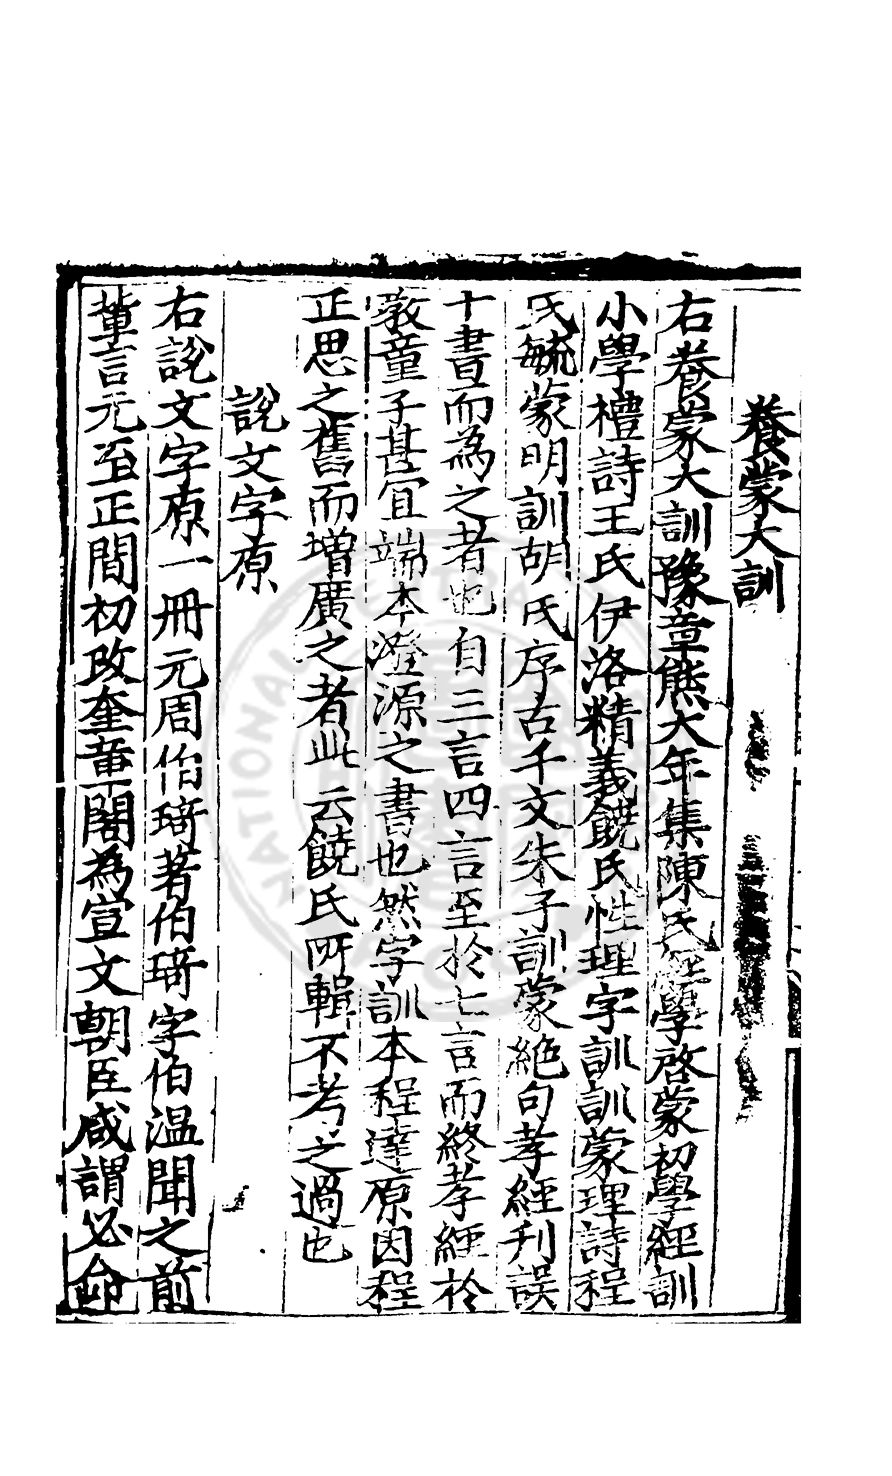 養蒙大訓
右養蒙大訓豫章熊大年集陳氏經學啓蒙初學經訓
小學禮詩王氏伊洛精義饒氏性理字訓訓蒙理詩程
氏毓蒙明訓胡氏序古千文朱子訓蒙絶句孝經刋誤
十書而為之者也自三言四言至於七言而終孝經於
教童子甚宜端本澄源之書也然字訓本程達原因程
正思之舊而增廣之者此云饒氏所輯不考之過也
說文字原
右說文字原一冊元周伯琦著伯琦字伯温聞之前
輩言元至正間初改奎章閣為宣文朝臣咸謂必命